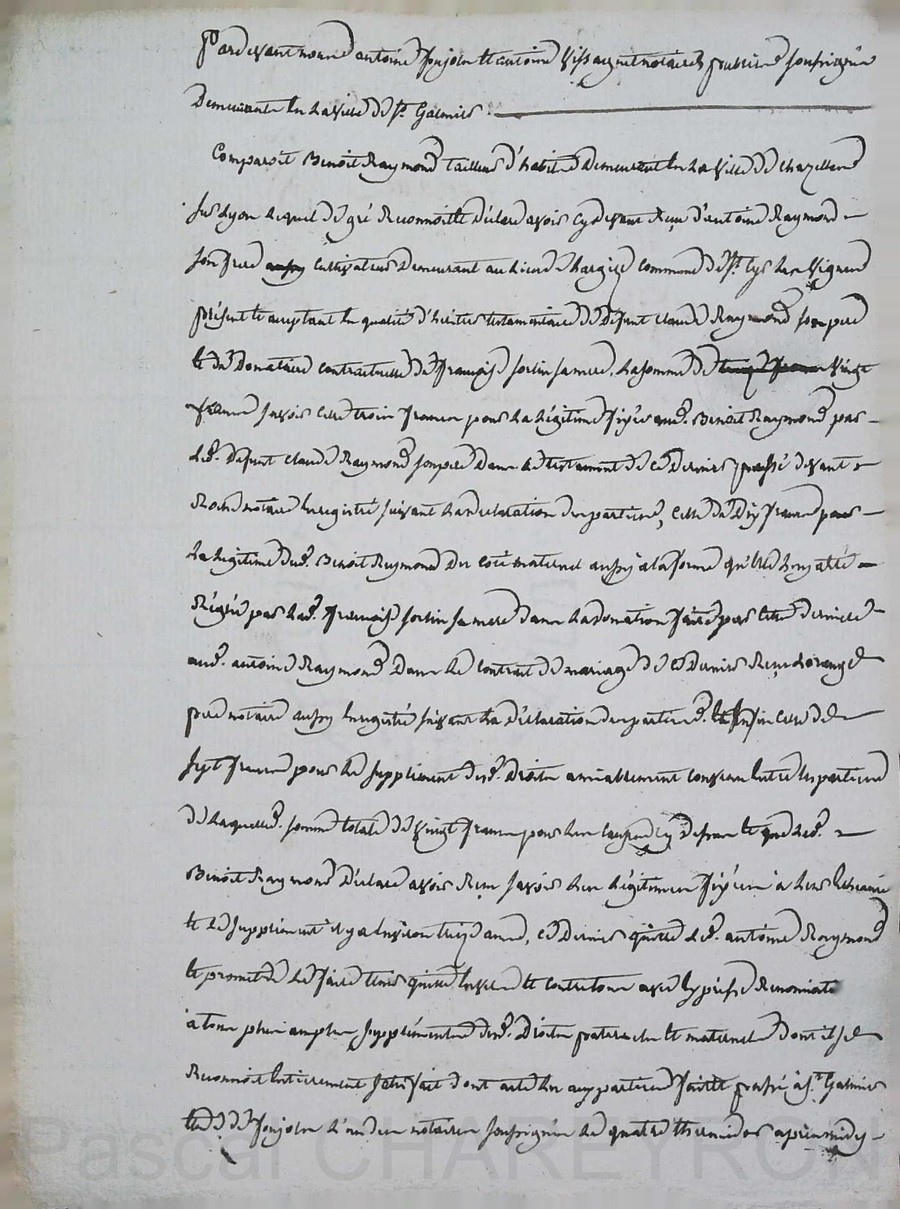 Pardevant nous antoine Jonjon et antoine Vissaguet notaires publics soussignés
Demeurants en La Ville de St. Galmier
Comparoit Benoit Raymond tailleur d'habits Demeurant en La Ville de Chazelles
Sur Lyon Lequel de gré Reconnoit et déclare avoir cy devant Reçu d'antoine Raymond
son frere cultivateur Demeurant au Lieu de commune de St. Cyr Les Vignes
présent et acceptant En qualité d'héritier testamentaire de Défunt Claude Raymond son pere
et de Donataire contractuelle de françoise fortin sa mere, La somme de Vingt
francs savoir celle trois francs pour La Légitime fixée aud. Benoit Raymond par
Led. Défunt Claude Raymond son pere Dans Le testament de ce Dernier passé devant
notaire Enregistré suivant La declaration des parties, celle de Dix francs pour
La Légitime dud. Benoit Raymond Du coté maternel aussy a la forme qu'elle a été
Réglée par Lad. françoise fortin sa mere dans La donation faite par cette derniere
aud. antoine Raymond Dans Le contrat de mariage de ce Dernier Reçu
pere notaire aussy Enregistré suivant La déclaration des parties. et Enfin celle de
sept francs pour Le supplément desd. Droits amiablement convenu Entre Les parties
De Laquelle. somme totale de vingt francs pour Les causes cy dessus et que Led.
Benoit Raymond Déclare avoir Reçu savoir Les Légitimes fixées à Leur Echeance
et Le supplément il y a Environ treize ans, ce Dernier quitte Led. antoine Raymond
et promet de Le faire tenir quitte Envers et contre tous avec Expresse Renonciation
à tous plus amples suppléments desd. Droits paternels et maternels Dont il se
Reconnoit Entierement satisfait dont acte Les parties fait et passé à St. Galmier
Etude de Jonjon L'un des notaires soussignés Le quatre thermidor apres midy
Pascal CHAREYRON